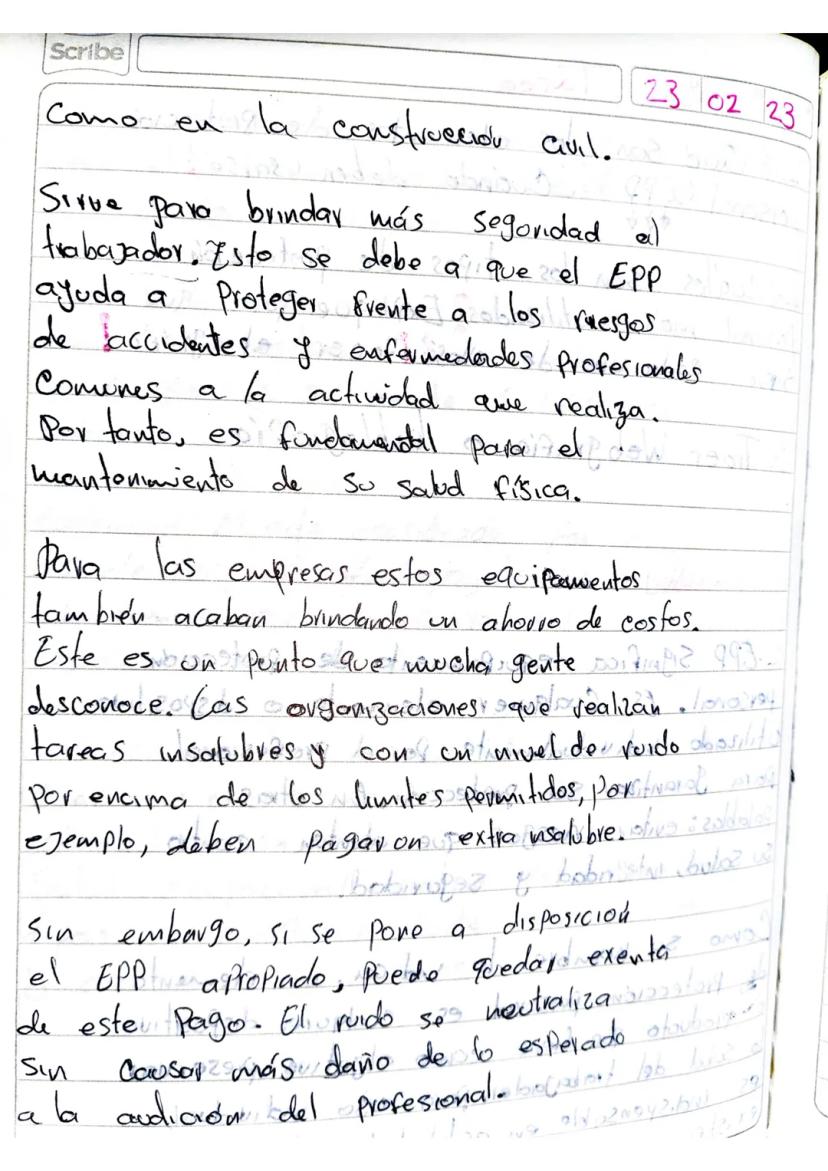 Scribe
23 02 23
Como en la construcción civil.
Sirve para brindar más seguridad al
trabajador. Esto se debe a que el EPP
ayuda a Proteger frente a los riesgos
de accidentes y enfermedades profesionales
Comunes a la actividad que realiza.
Por tanto, es fundamental para el
mantenimiento de su salud física.
Para las empresas estos equipamentos
también acaban brindando un ahorro de costos.
Este es un punto que mucha gente
desconoce. Las organizaciones que realizan
tareas insalubres y con un nivel de ruido
por encima de los limites permitidos, por
ejemplo, deben pagar un extra insalubre.
Sin embargo, si se pone a disposición
el EPP apropiado, puede quedar exenta
de este pago. El ruido se neutraliza
sin causar más daño de lo esperado
a la audición del profesional.